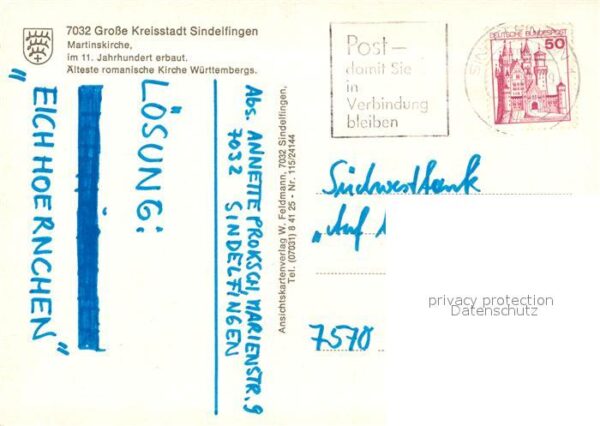 7032 Große Kreisstadt Sindelfingen
Martinskirche,
im 11. Jahrhundert erbaut.
Älteste romanische Kirche Württembergs.
LÖSUNG:
"EICHHOERNCHEN"
Abs. ANNETTE PROKSCH, MARIENSTR. 9
7032 SINDELFINGEN
Ansichtskartenverlag W. Feldmann, 7032 Sindelfingen,
Tel. (07031) 8 41 25 - Nr. 115/24144
Post –
damit Sie
in
Verbindung
bleiben
DEUTSCHE BUNDESPOST
50
Südwestfunk
"Auf
7570
privacy protection
Datenschutz